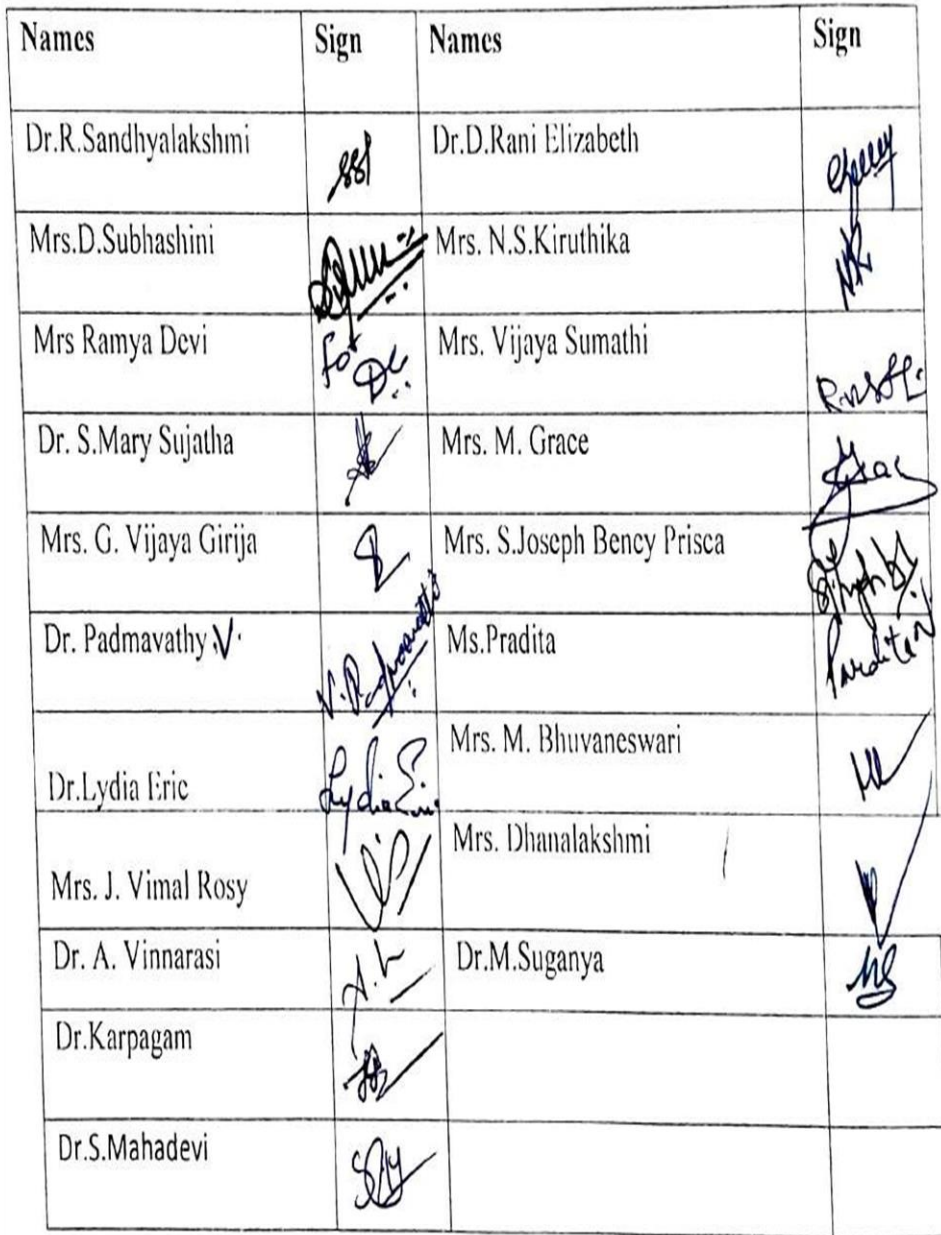 Names Sign Names Sign
Dr.R.Sandhyalakshmi Dr.D.Rani Elizabeth
Mrs.D.Subhashini Mrs. N.S.Kiruthika
Mrs Ramya Devi for Mrs. Vijaya Sumathi
Dr. S.Mary Sujatha Mrs. M. Grace
Mrs. G. Vijaya Girija Mrs. S.Joseph Bency Prisca
Dr. Padmavathy.V. V.Padmavathi Ms.Pradita
Dr.Lydia Eric Lydia Eric Mrs. M. Bhuvaneswari
Mrs. J. Vimal Rosy Mrs. Dhanalakshmi
Dr. A. Vinnarasi Dr.M.Suganya MS
Dr.Karpagam
Dr.S.Mahadevi